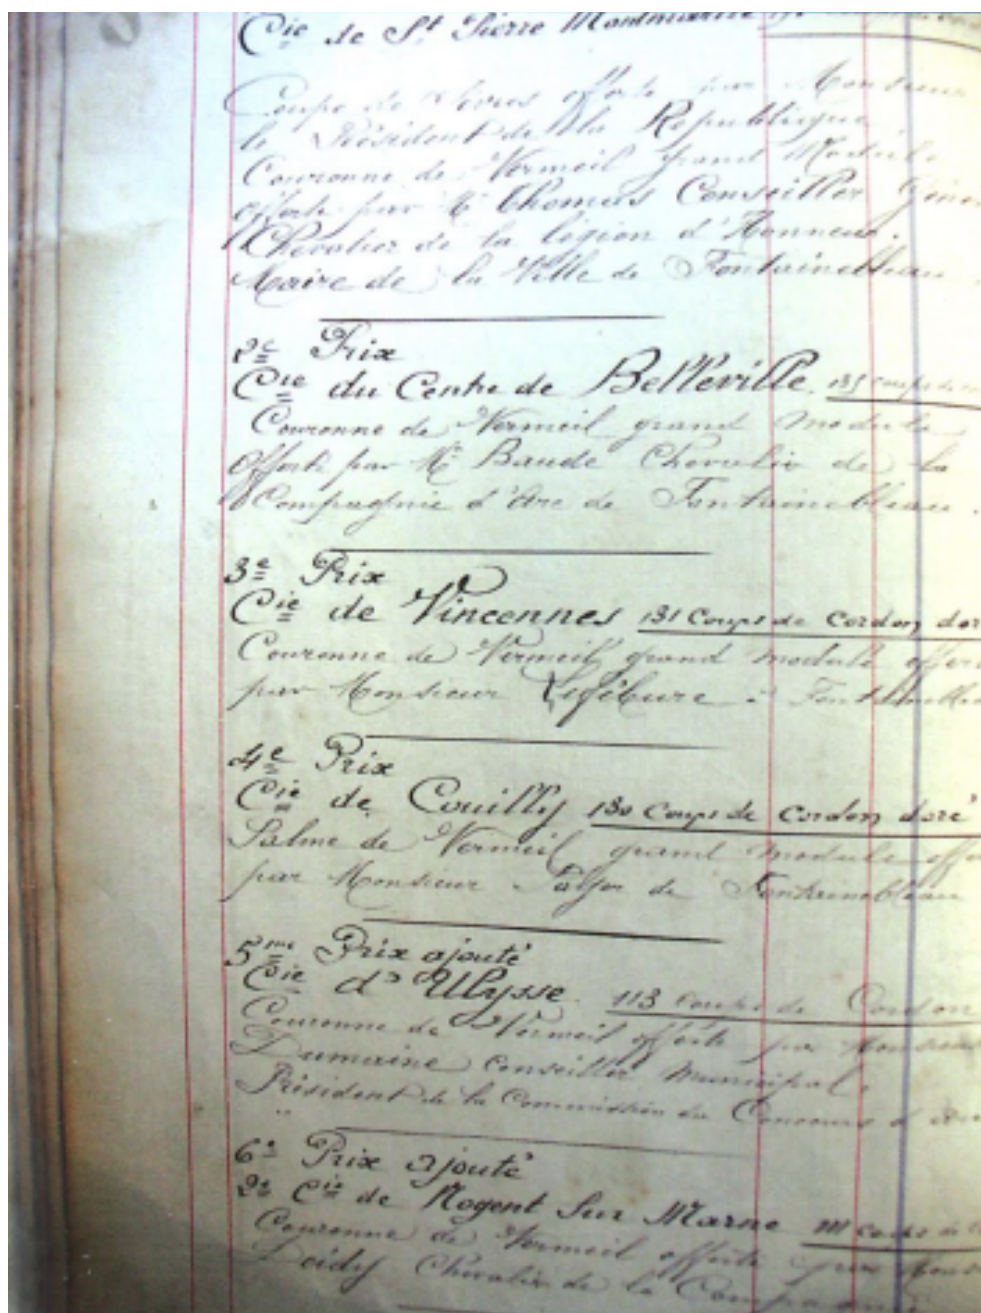 Cie de St Pierre Montmartre
Coupe de Sèvres offerte par Monsieur
le Président de la République.
Couronne de Vermeil grand Module
offerte par Mr Thomas Conseiller Géné
Chevalier de la légion d'Honneur.
Maire de la Ville de Fontainebleau.
2e Prix
Cie du Centre de Belleville. 135 coups de
Couronne de Vermeil grand module
offerte par Mr Baude Chevalier de la
Compagnie d'Arc de Fontainebleau.
3e Prix
Cie de Vincennes 131 Coups de Cordon doré
Couronne de Vermeil grand module offerte
par Monsieur Lefébure à Fontainebleau
4e Prix
Cie de Couilly 130 Coups de Cordon doré
Palme de Vermeil grand module offe
par Monsieur de Fontainebleau
5me Prix ajouté
Cie d'Ulysse. 113 coups de Cordon
Couronne de Vermeil offerte par Monsieur
Dumaine Conseiller Municipal.
Président de la Commission du Concours d'
6e Prix ajouté
2e Cie de Nogent Sur Marne 111 coups de
Couronne de Vermeil offerte par
Chevalier de la Compagnie